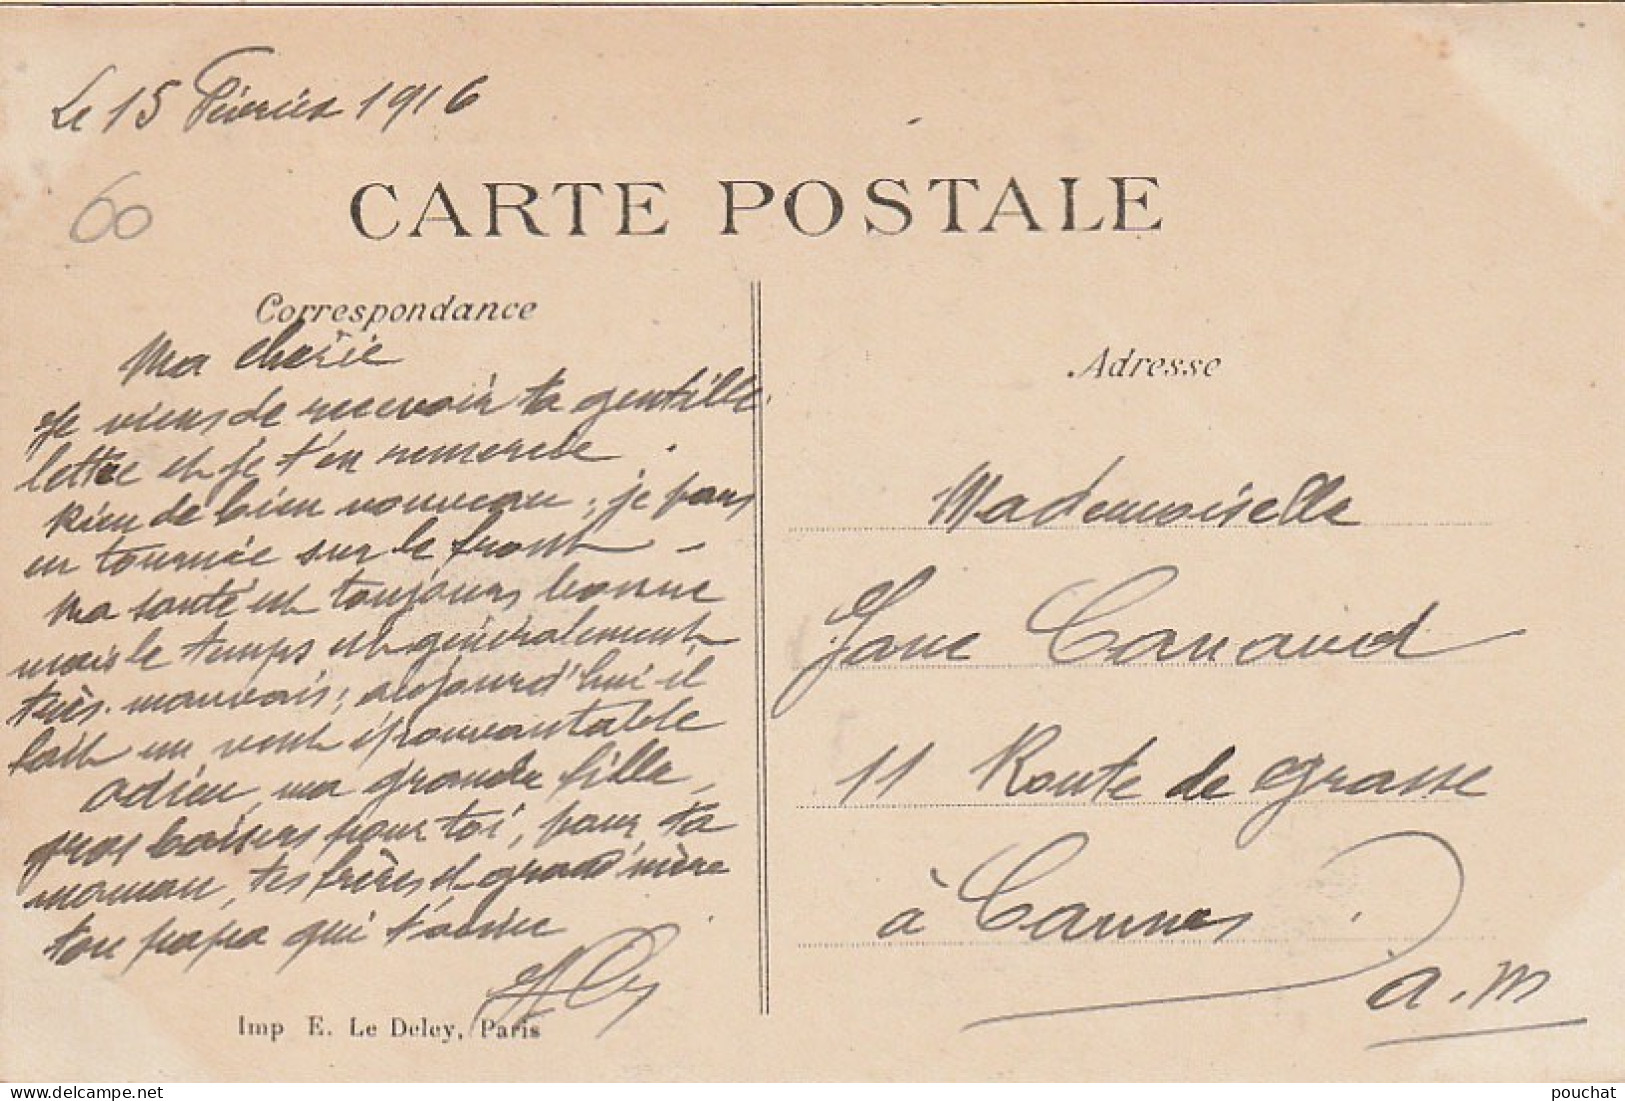 Le 15 Février 1916
60
CARTE POSTALE
Correspondance
Ma chérie
Je viens de recevoir ta gentille
lettre et je t'en remercie.
Rien de bien nouveau ; je pars
en tournée sur le front -
Ma santé est toujours bonne
mais le temps est généralement
très mauvais ; aujourd'hui il
fait un vent épouvantable
adieu, ma grande fille,
gros baisers pour toi, pour ta
maman, tes frères et grand'mère
ton papa qui t'aime
Imp E. Le Deley, Paris
Adresse
Mademoiselle
Jane
11 Route de Grasse
à Cannes
a.m
pouchat